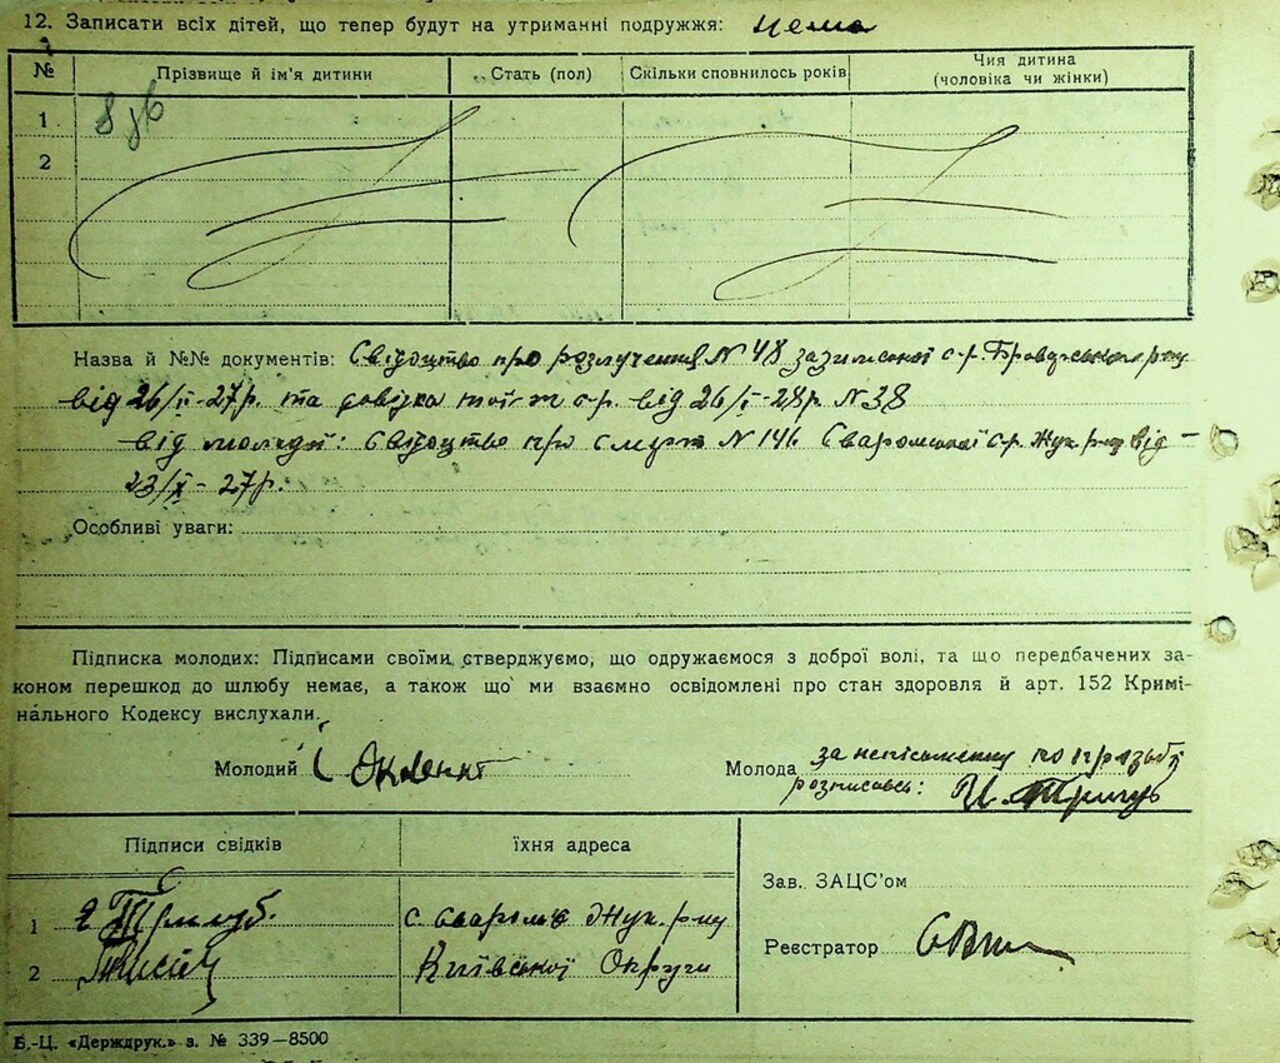 12. Записати всіх дітей, що тепер будут на утриманні подружжя: нема
№ Прізвище й ім'я дитини Стать (пол) Скільки сповнилось років Чия дитина (чоловіка чи жінки)
1
2
Назва й №№ документів: Свідоцтво про розлучення N 48 зазимської с-р. Броварського р-ну
від 26/II-27р. та довідка тої-ж с-р. від 26/I-28р. N 38
від молодої: свідоцтво про смерть N 146 Сваромської с-р. Жук. р-ну від -
23/X - 27р.
Особливі уваги:
Підписка молодих: Підписами своїми стверджуємо, що одружаємося з доброї волі, та що передбачених за-
коном перешкод до шлюбу немає, а також що ми взаємно освідомлені про стан здоровля й арт. 152 Кримі-
нального Кодексу вислухали.
Молодий Молода за неписьменну по прозьбі
розписавсь:
Підписи свідків їхня адреса
Зав. ЗАЦС'ом
1 с Сваром'є Жук. р-ну
Реєстратор
2 Київської Округи
Б.-Ц. «Держдрук.» з. № 339—8500